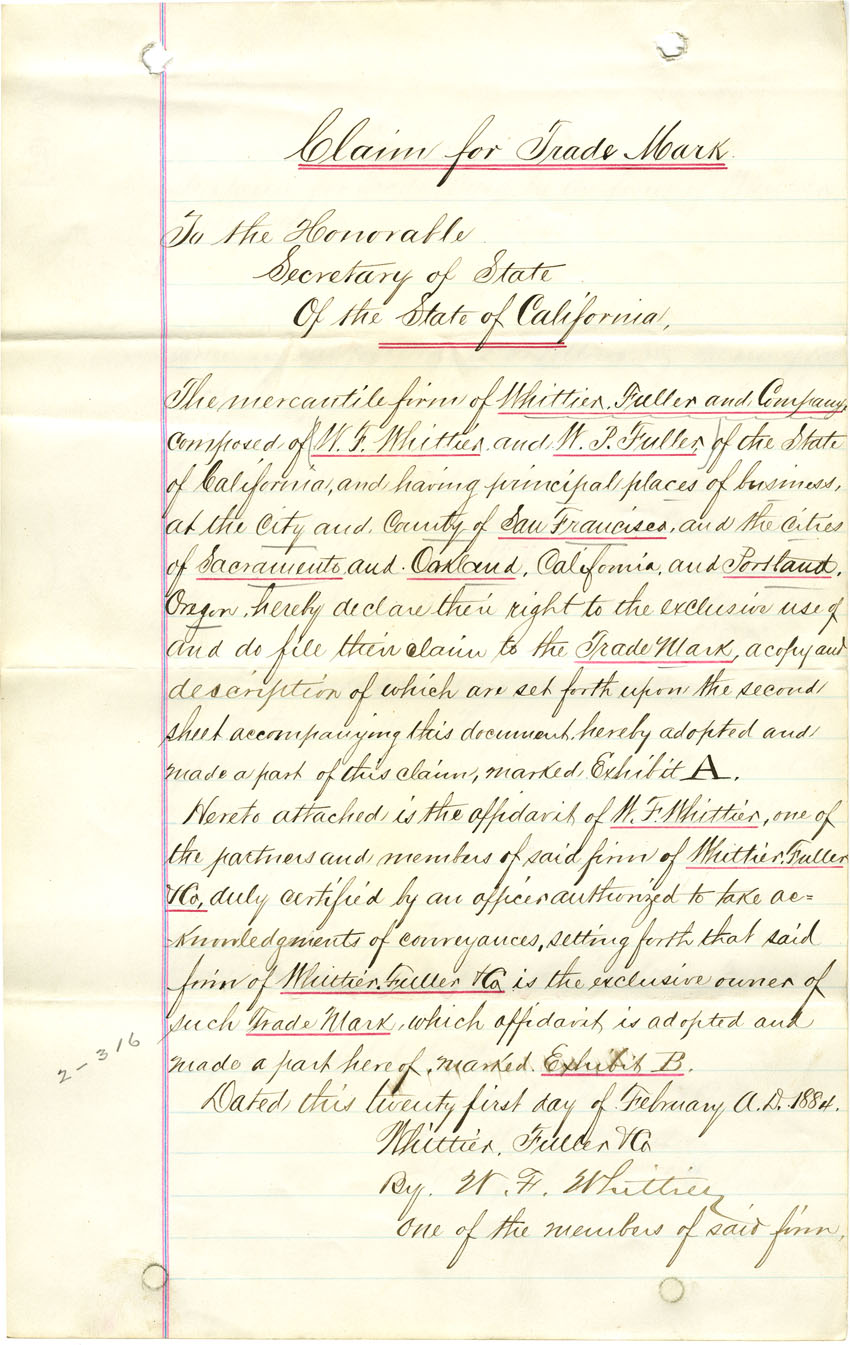 Claim for Trade Mark.
To the Honorable
Secretary of State
Of the State of California,
The mercantile firm of Whittier, Fuller and Company,
composed of (W. F. Whittier, and W. P. Fuller,) of the State
of California, and having principal places of business,
at the City and County of San Francisco, and the Cities
of Sacramento and Oakland, California, and Portland,
Oregon, hereby declare their right to the exclusive use of
and do file their claim to the Trade Mark, a copy and
description of which are set forth upon the second
sheet accompanying this document, hereby adopted and
made a part of this claim, marked Exhibit A.
Hereto attached is the affidavit of W. F. Whittier, one of
the partners and members of said firm of Whittier, Fuller
&Co, duly certified by an officer authorized to take ac=
knowledgments of conveyances, setting forth that said
firm of Whittier, Fuller &Co is the exclusive owner of
such Trade Mark, which affidavit is adopted and
made a part hereof, marked Exhibit B.
2-316
Dated this twenty first day of February A.D. 1884.
Whittier, Fuller &Co
By. W. F. Whittier
One of the members of said firm.